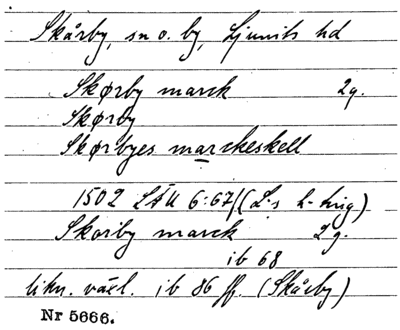 Skårby, sn o. by, Ljunits hd
Skørby marck 2g.
Skørby
Skørbyes marckeskell
1502 LÄU 6:67 (L-s h-hrig)
Skoriby marck 2g.
ib 68
likn. växl. ib 86 ff. (Skårby)
Nr 5666.